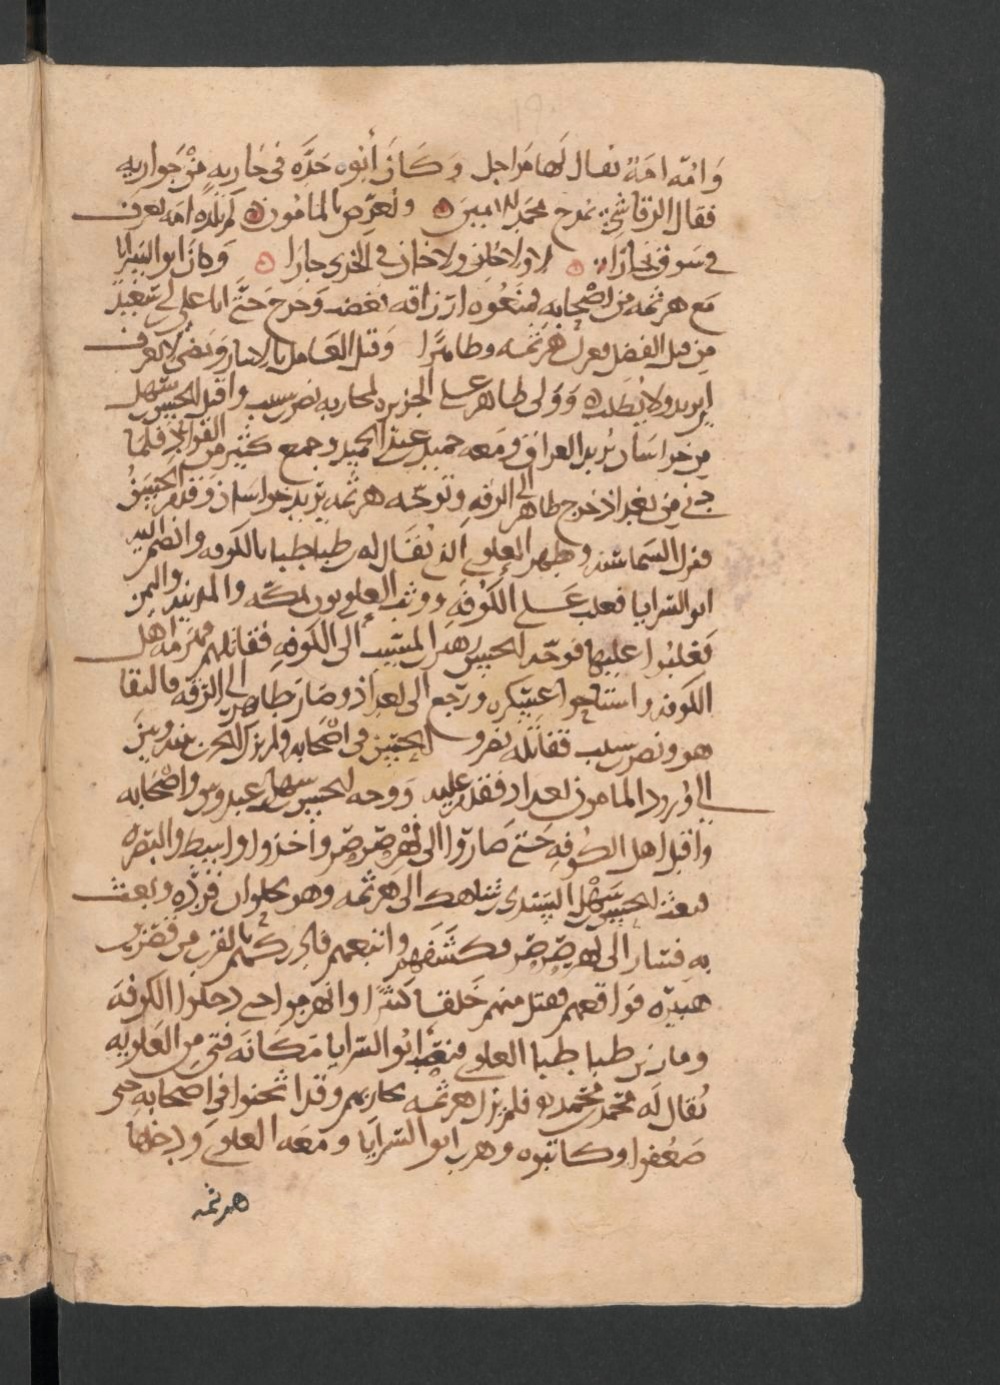 وَامّه امَةٌ يقال لَها مَراجل وكَانَ أبوه حَدَّه في جَاريةٍ مِنْ جَواريه
فقال الرقاشي يمدح محمد الامين ويُعرّض بالمامون لم تلده امه تعرف
في سوق تجارا لا ولا خان ولا خان في الخزي جارا وَكان ابو السرايا
مَع هرثمه من اصْحابه فمنعُوه ارزاقه فغضب وَخرج حَتَّى اتا علي بن سعيد
من قبل الفضل فعزل هرثمه وطاهرًا وَقتل العَامل بالانبار وَمضى لا يعرف
اين يريد ولا يُطلب وَوَلى طاهر على الجزيره لمحاربه نصر بن شبيب واقبل الحسن بن سهل
مِن خراسَان يُريد العراق ومَعه حميد بن عبد الحميد وجمع كثير من القواد فلما
دنى من بغداد خرج طاهر الى الرقه وتوجّه هرثمه يريد خراسان وَقدم الحسَن
فنزل الشماسيه وظهر العلوي الذي يُقَال له ابن طباطبا بالكوفه وانضم اليه
ابو السّرايا فغلب عَلى الكُوفَةِ ووثب العلويون بمكّه والمدينه واليمن
فغلبُوا عليها فوجّه الحسن زهير بن المسيّب الى الكوفهِ فقاتلهم فهزمه اهل
الكوفه واستباحوا عسكره ورجع الى بغداد وصَار طاهر الى الرقه فالتقا
هو ونصر بن شبيب فقاتله نصر و الحسَين في اصْحابه ولم يزل الحرب بينه وبَين
الى وُرود المامون بغداد فقدم عليه وَوجه الحسن بن سهل عبدوس واصْحابه
واقبل اهل الكُوفه حَتى صَاروا الى نهْر صَرصَر وَاخذوا واسِط والبصره
فبعث الحسن بن سَهْل السِّندي بن شاهك الى هرثمه وهو بحلوان فردّه وبعث
به فسَار الى نهر صَرصَر فكشفهم واتبعهم فادركهم بالقرب من قصْر ابن
هبيره فوَاقعهم فقتل منهم خَلقا كثيرًا وانهزموا حتى دخلوا الكوفَة
ومات ابن طباطبا العلوي فنصَّب ابُو السّرايا مَكانَه فتى من العَلويه
يُقال لَه محمّد بن محمد فلم يزل هرثمه يحاربهم وقد اثخنوا في اصحابهِ حتى
ضعُفوا وكاتبوه وهرب ابو السّرايا ومَعه العلوي وَدخلها
هرثمه